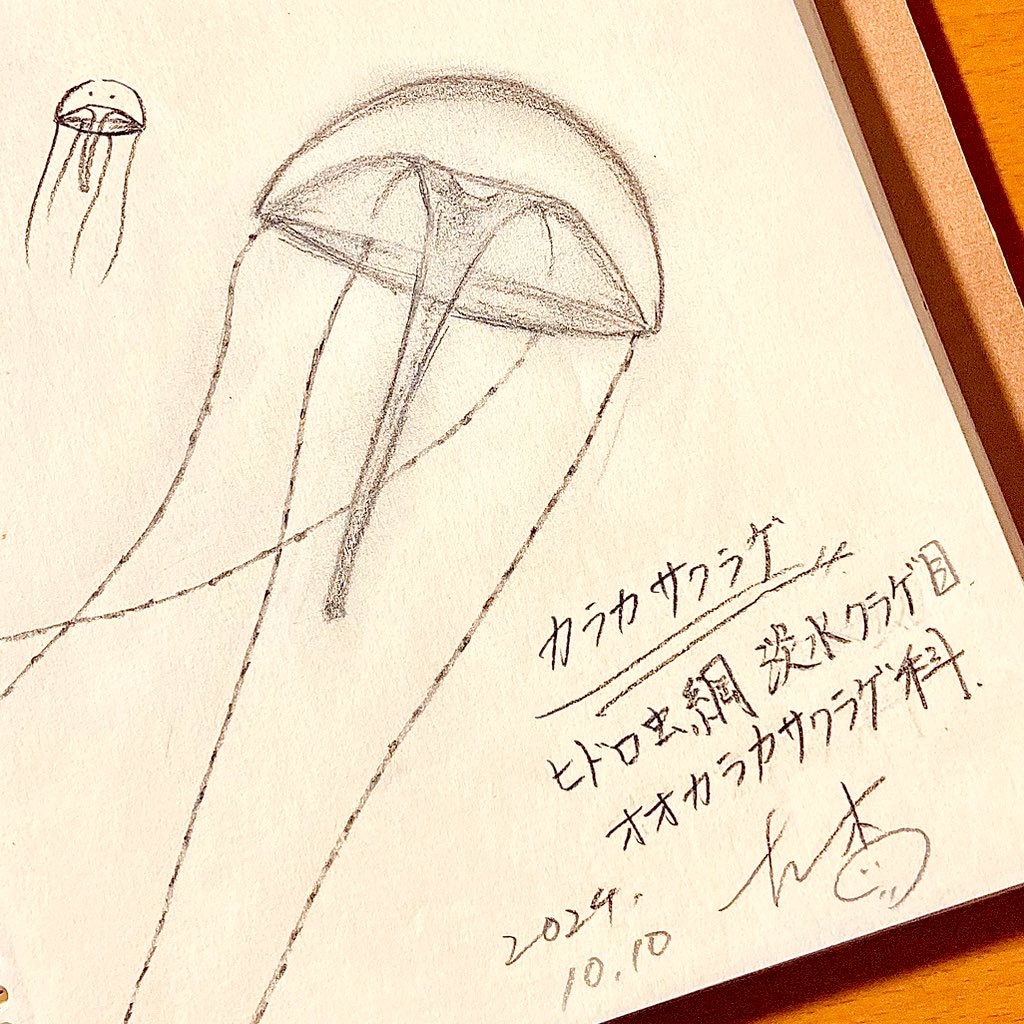 カラカサクラゲ
ヒドロ虫綱 淡水クラゲ目
オオカラカサクラゲ科.
2024.
10.10